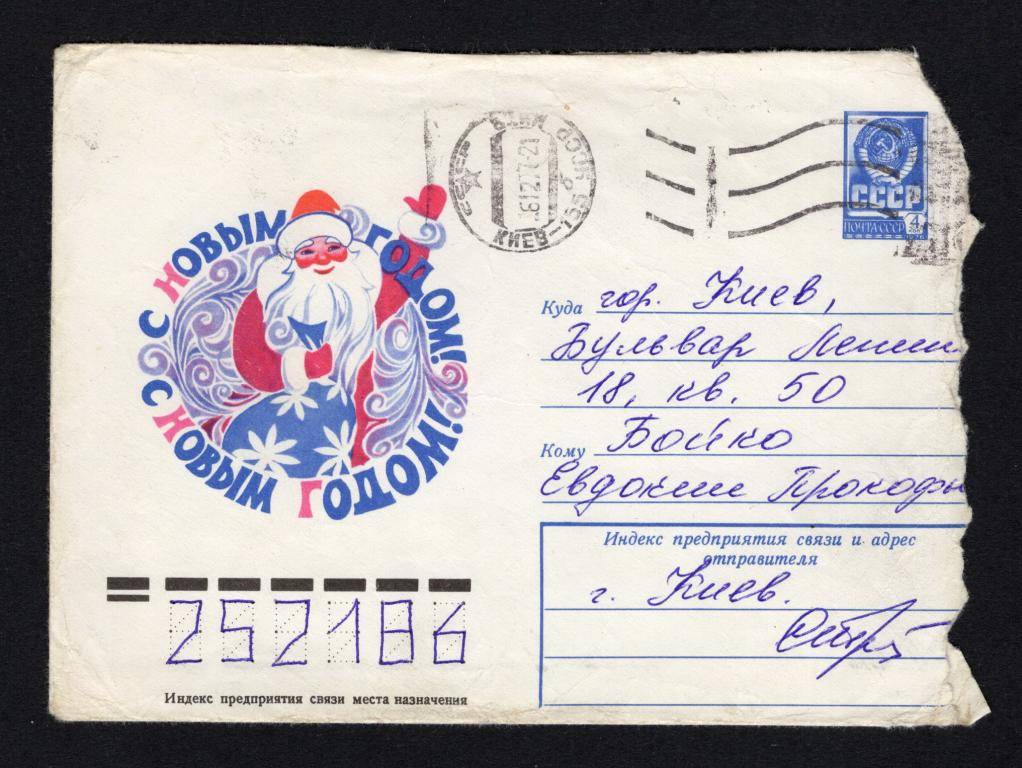 С НОВЫМ ГОДОМ!
С НОВЫМ ГОДОМ!
КИЕВ-155
СССР
ПОЧТА СССР
4
Куда гор. Киев,
Бульвар Ленин
18, кв. 50
Кому Бойко
Евдокии Прокофь
Индекс предприятия связи и адрес
отправителя
г. Киев.
252186
Индекс предприятия связи места назначения